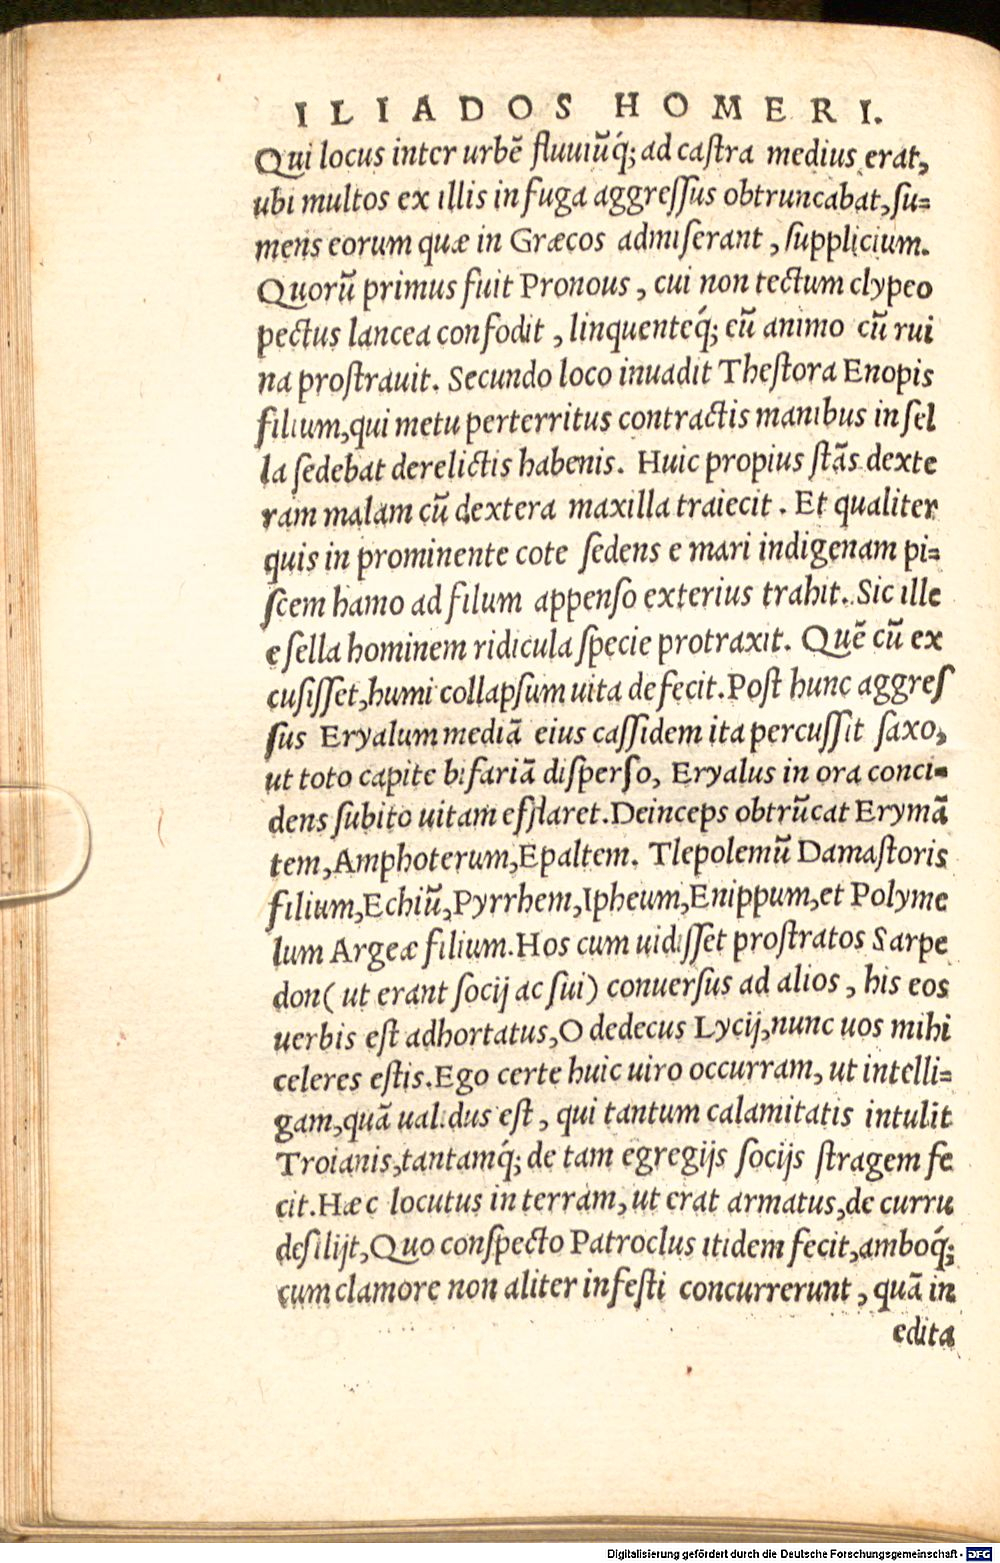 ILIADOS HOMERI.
Qui locus inter urbē fluuiūq́; ad caſtra medius erat,
ubi multos ex illis in fuga aggreſſus obtruncabat, ſu=
mens eorum quæ in Græcos admiſerant, ſupplicium.
Quorū primus fuit Pronous, cui non tectum clypeo
pectus lancea confodit, linquenteq́; eū animo cū rui
na proſtrauit. Secundo loco inuadit Theſtora Enopis
filium, qui metu perterritus contractis manibus in ſel
la ſedebat derelictis habenis. Huic propius ſtās dexte
ram malam cū dextera maxilla traiecit. Et qualiter
quis in prominente cote ſedens e mari indigenam pi=
ſcem hamo ad filum appenſo exterius trahit. Sic ille
e ſella hominem ridicula ſpecie protraxit. Quē cū ex
cuſiſſet, humi collapſum uita defecit. Poſt hunc aggreſ
ſus Eryalum mediā eius caſſidem ita percuſſit ſaxo,
ut toto capite bifariā diſperſo, Eryalus in ora conci=
dens ſubito uitam efflaret. Deinceps obtrūcat Erymā
tem, Amphoterum, Epaltem. Tlepolemū Damaſtoris
filium, Echiū, Pyrrhem, Ipheum, Enippum, et Polyme
lum Argeæ filium. Hos cum uidiſſet proſtratos Sarpe
don (ut erant ſocij ac ſui) conuerſus ad alios, his eos
uerbis eſt adhortatus, O dedecus Lycij, nunc uos mihi
celeres eſtis. Ego certe huic uiro occurram, ut intelli=
gam, quā ualidus eſt, qui tantum calamitatis intulit
Troianis, tantamq́; de tam egregijs ſocijs ſtragem fe
cit. Hæc locutus in terram, ut erat armatus, de curru
deſilijt, Quo conſpecto Patroclus itidem fecit, amboq́;
cum clamore non aliter infeſti concurrerunt, quā in
edita
Digitalisierung gefördert durch die Deutsche Forschungsgemeinschaft - DFG